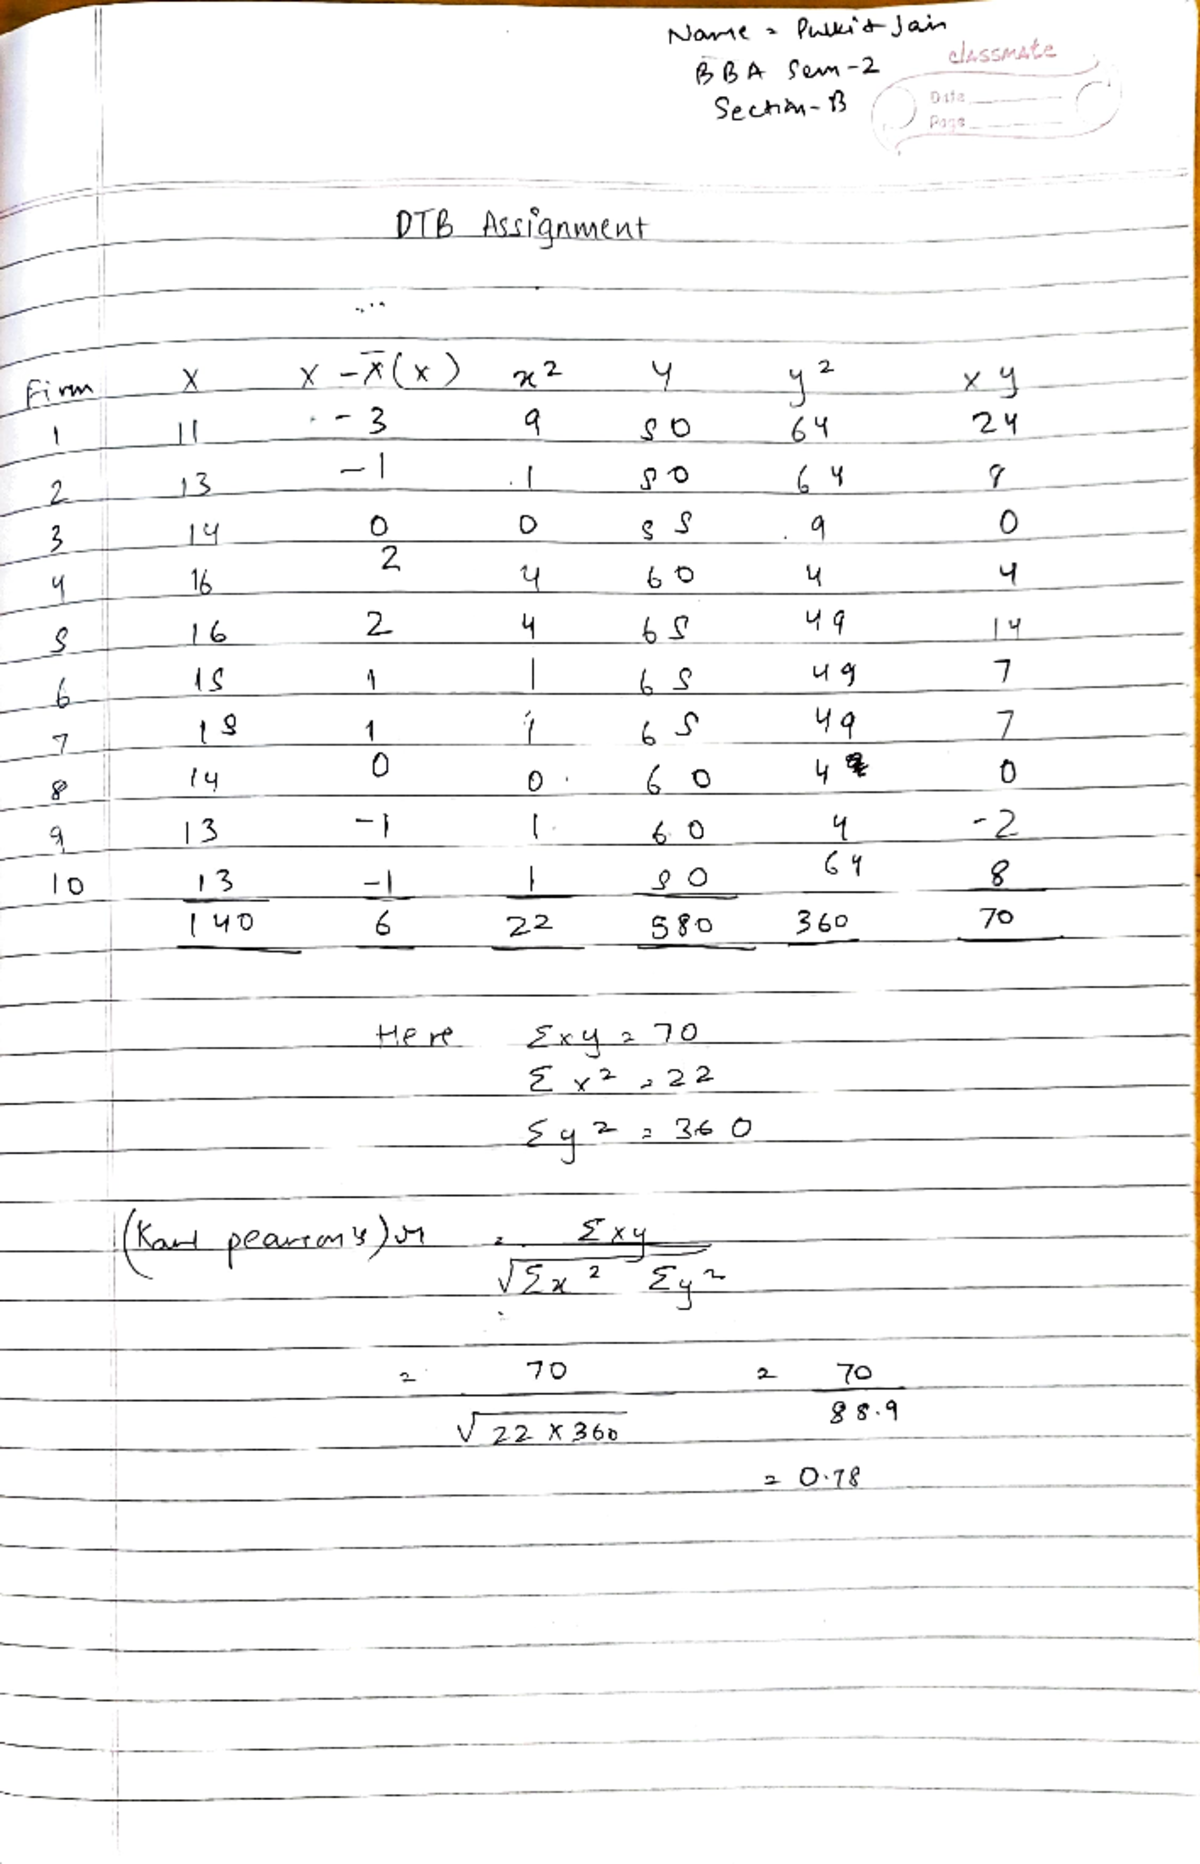 Name = Pulkit Jain
BBA Sem-2
Section-B
classmate
Date
Page
DTB Assignment
Firm X X - X̄ (x) x² Y y² xy
1 11 -3 9 50 64 24
2 13 -1 1 50 64 8
3 14 0 0 55 9 0
4 16 2 4 60 4 4
5 16 2 4 65 49 14
6 15 1 1 65 49 7
7 15 1 1 65 49 7
8 14 0 0 60 4 0
9 13 -1 1 60 4 -2
10 13 -1 1 50 64 8
140 6 22 580 360 70
Here Σxy = 70
Σx² = 22
Σy² = 360
(Karl pearson's) r = Σxy / √Σx² Σy²
= 70 / √22 x 360 = 70 / 88.9
= 0.78